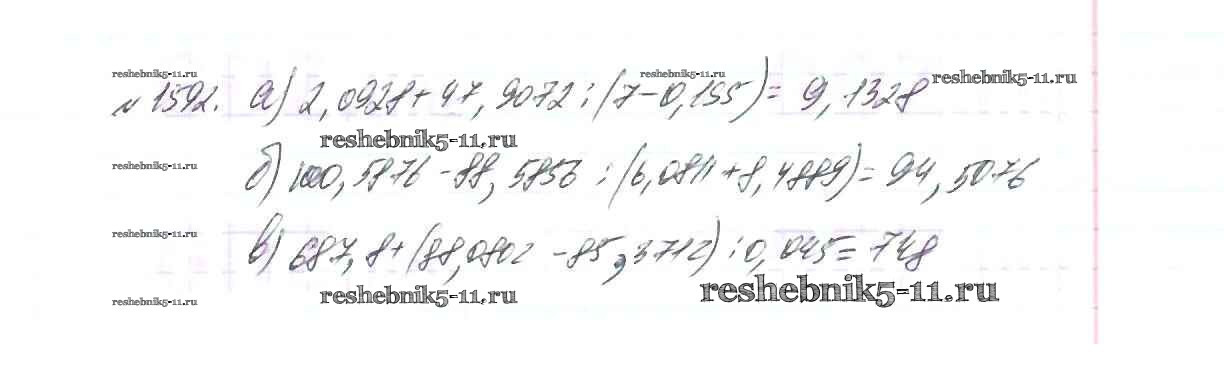 reshebnik5-11.ru
reshebnik5-11.ru
reshebnik5-11.ru
№ 1592. а) 2,0928+47,9072:(7-0,195)= 9,1328
reshebnik5-11.ru
reshebnik5-11.ru
б) 100,5876-88,5856:(6,0811+8,4889)=94,5076
reshebnik5-11.ru
в) 687,8+(88,0802-85,3712):0,045=748
reshebnik5-11.ru
reshebnik5-11.ru
reshebnik5-11.ru